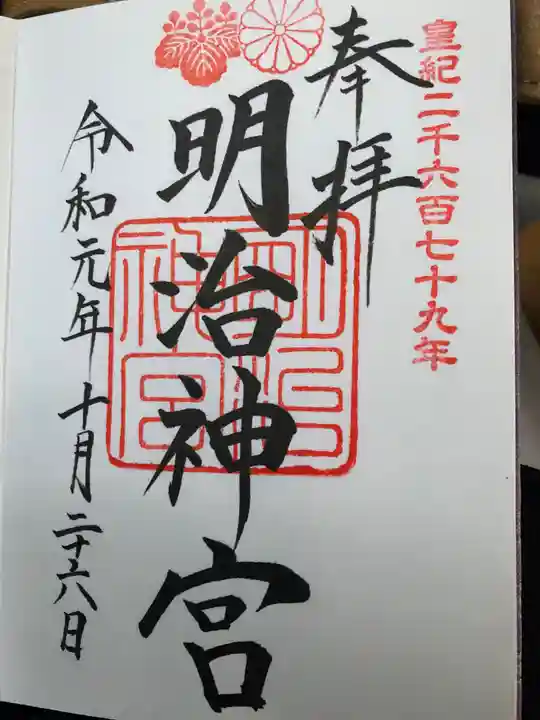 皇紀二千六百七十九年
奉拝
明治神宮
明治神宮
令和元年十月二十六日